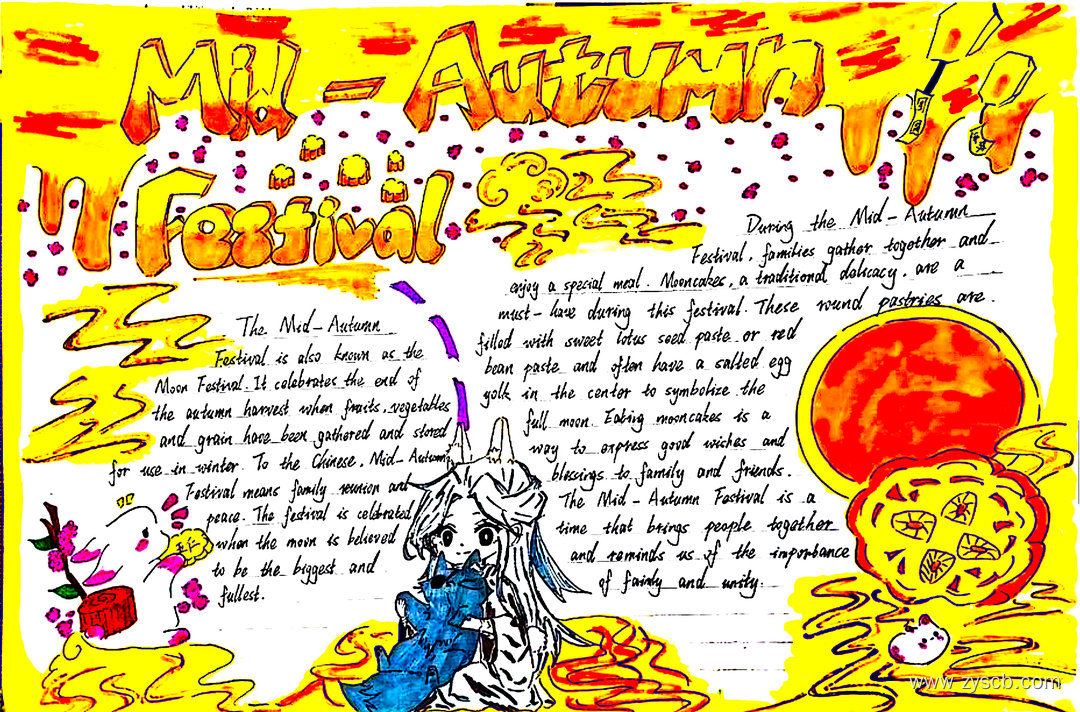 Mid-Autumn
Festival
The Mid-Autumn
Festival is also known as the
Moon Festival. It celebrates the end of
the autumn harvest when fruits, vegetables
and grain have been gathered and stored
for use in winter. To the Chinese, Mid-Autumn
Festival means family reunion and
peace. The festival is celebrated
when the moon is believed
to be the biggest and
fullest.
During the Mid-Autumn
Festival, families gather together and
enjoy a special meal. Mooncakes, a traditional dalicacy, are a
must-have during this festival. These round pastries are
filled with sweet lotus seed paste or red
bean paste and often have a salted egg
yolk in the center to symbolize the
full moon. Eating mooncakes is a
way to express good wishes and
blessings to family and friends.
The Mid-Autumn Festival is a
time that brings people together
and reminds us of the importance
of family and unity.
www.zyscb.com